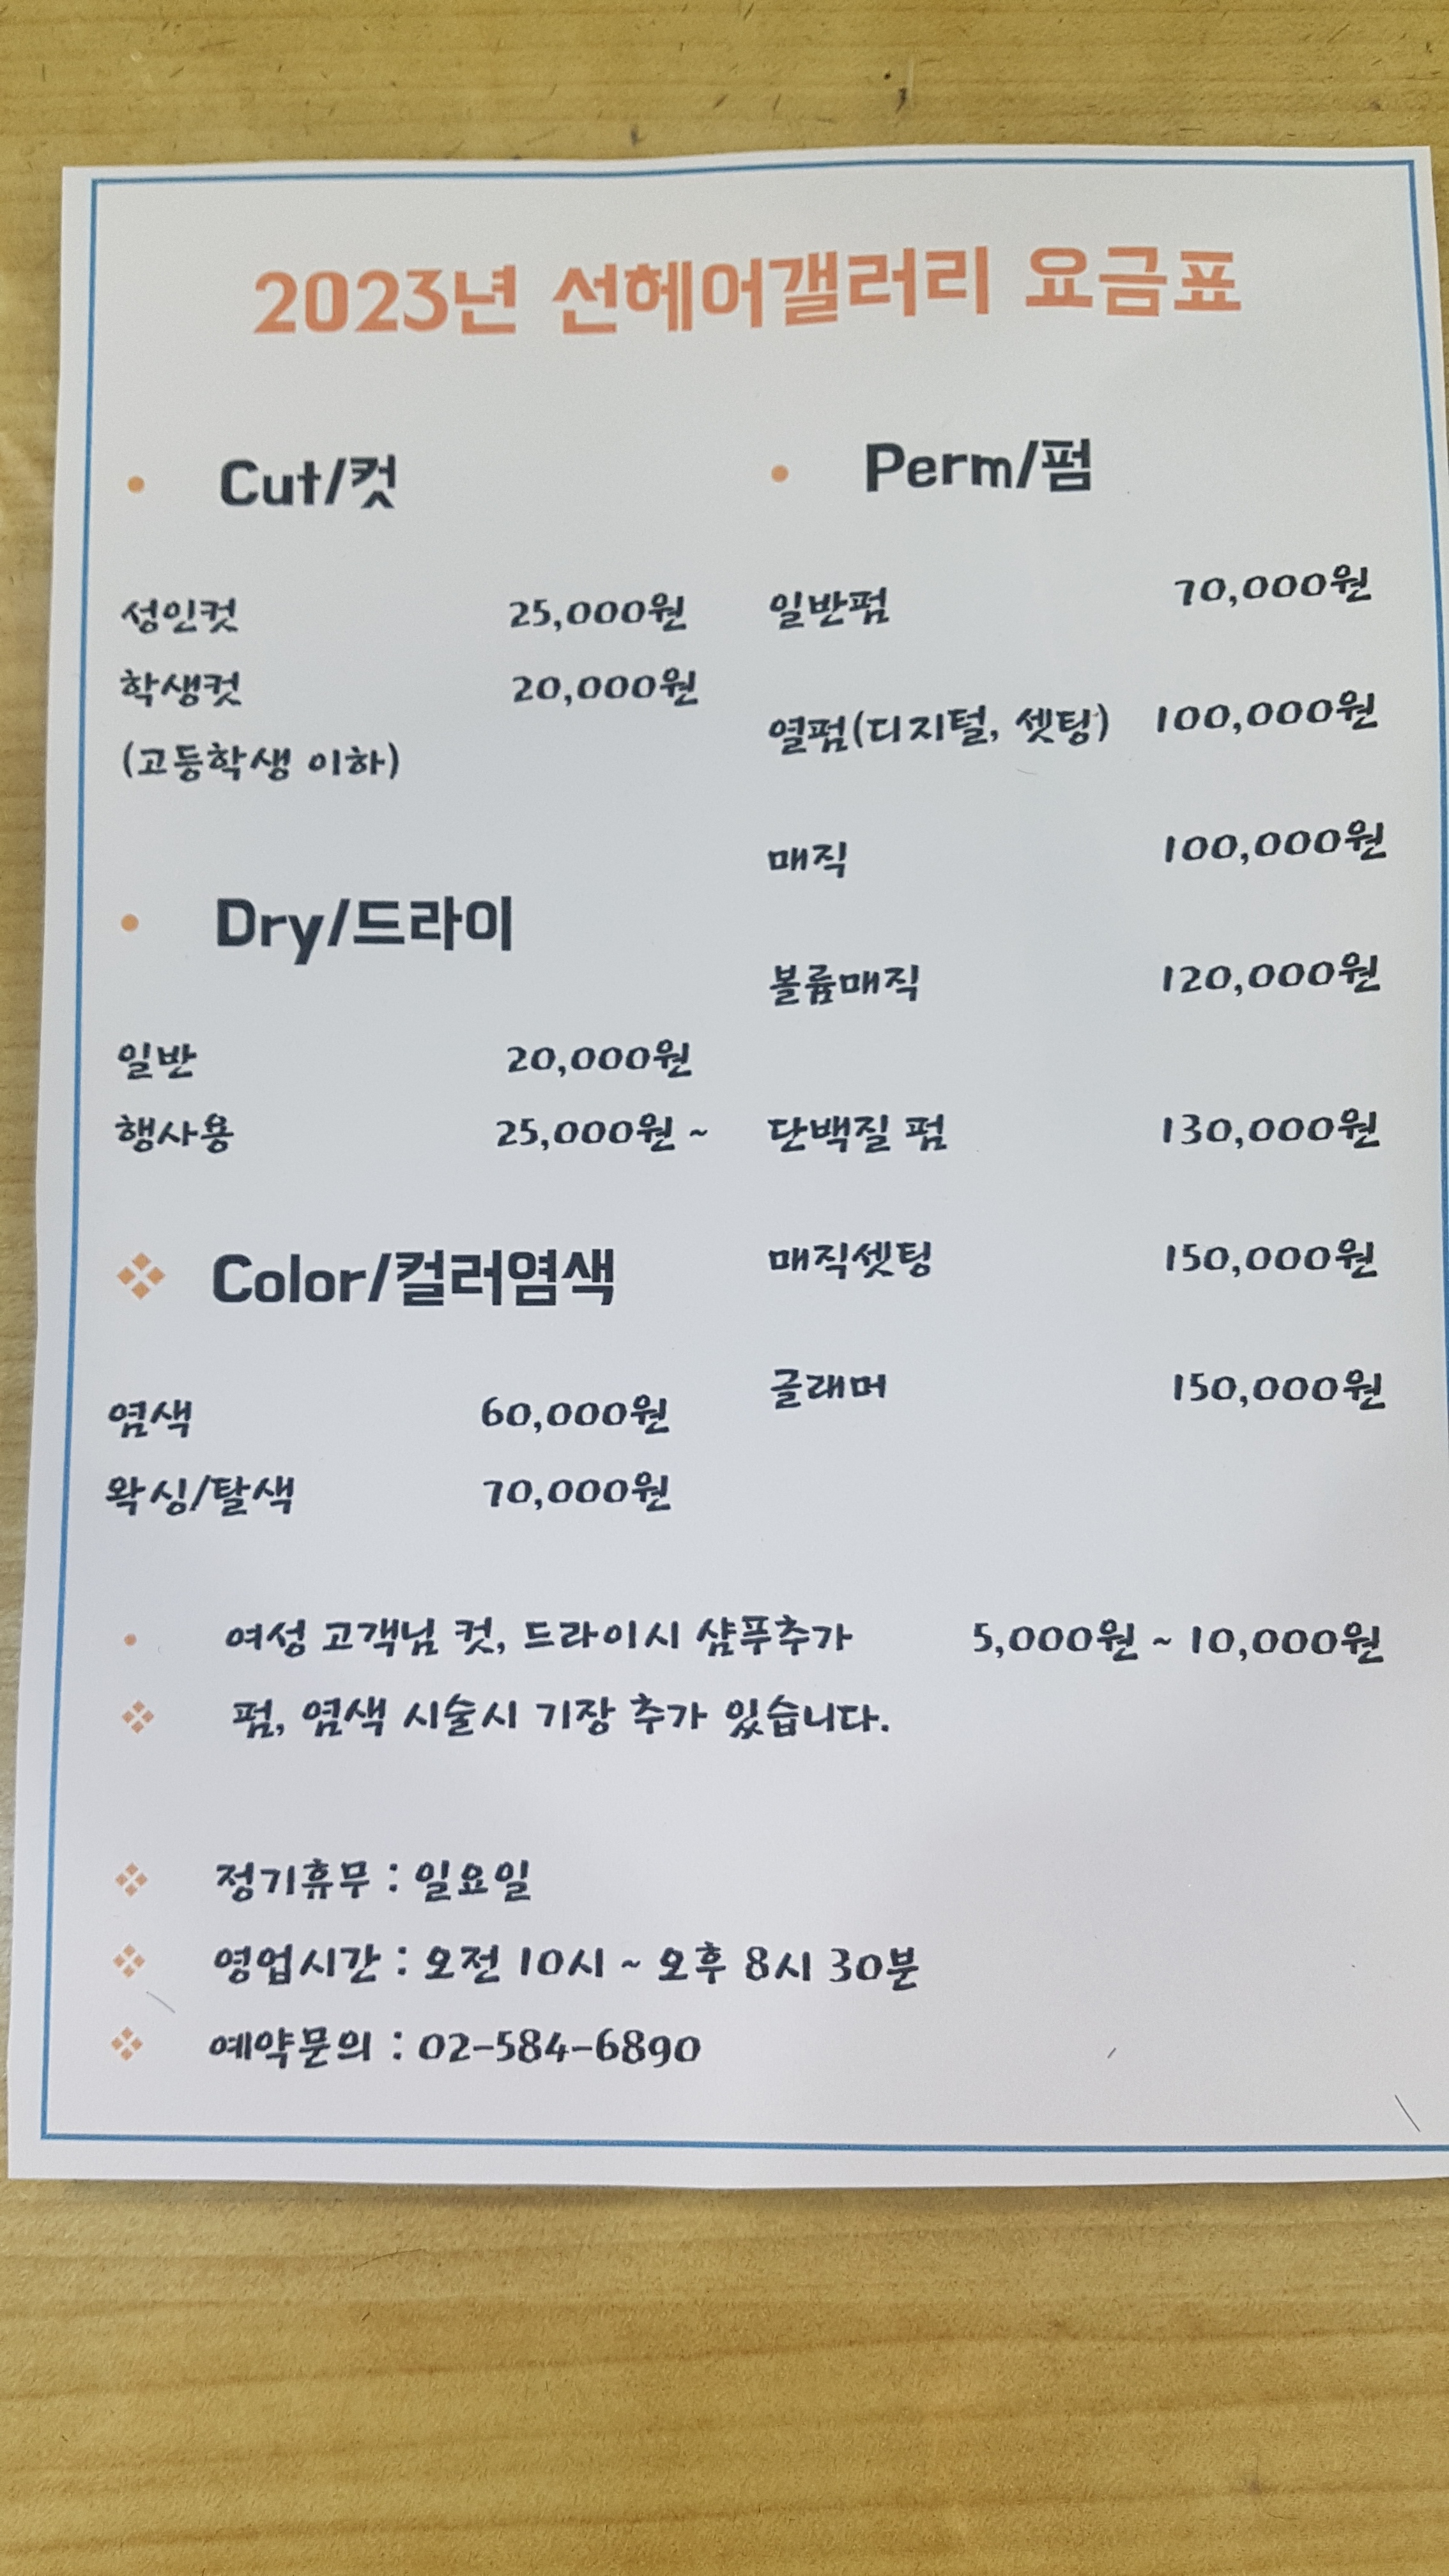 2023년 선헤어갤러리 요금표
Cut/컷
성인컷 25,000원
학생컷 20,000원
(고등학생 이하)
Dry/드라이
일반 20,000원
행사용 25,000원 ~
Color/컬러염색
염색 60,000원
왁싱/탈색 70,000원
Perm/펌
일반펌 70,000원
열펌(디지털, 셋팅) 100,000원
매직 100,000원
볼륨매직 120,000원
단백질 펌 130,000원
매직셋팅 150,000원
글래머 150,000원
여성 고객님 컷, 드라이시 샴푸추가 5,000원 ~ 10,000원
펌, 염색 시술시 기장 추가 있습니다.
정기휴무 : 일요일
영업시간 : 오전 10시 ~ 오후 8시 30분
예약문의 : 02-584-6890